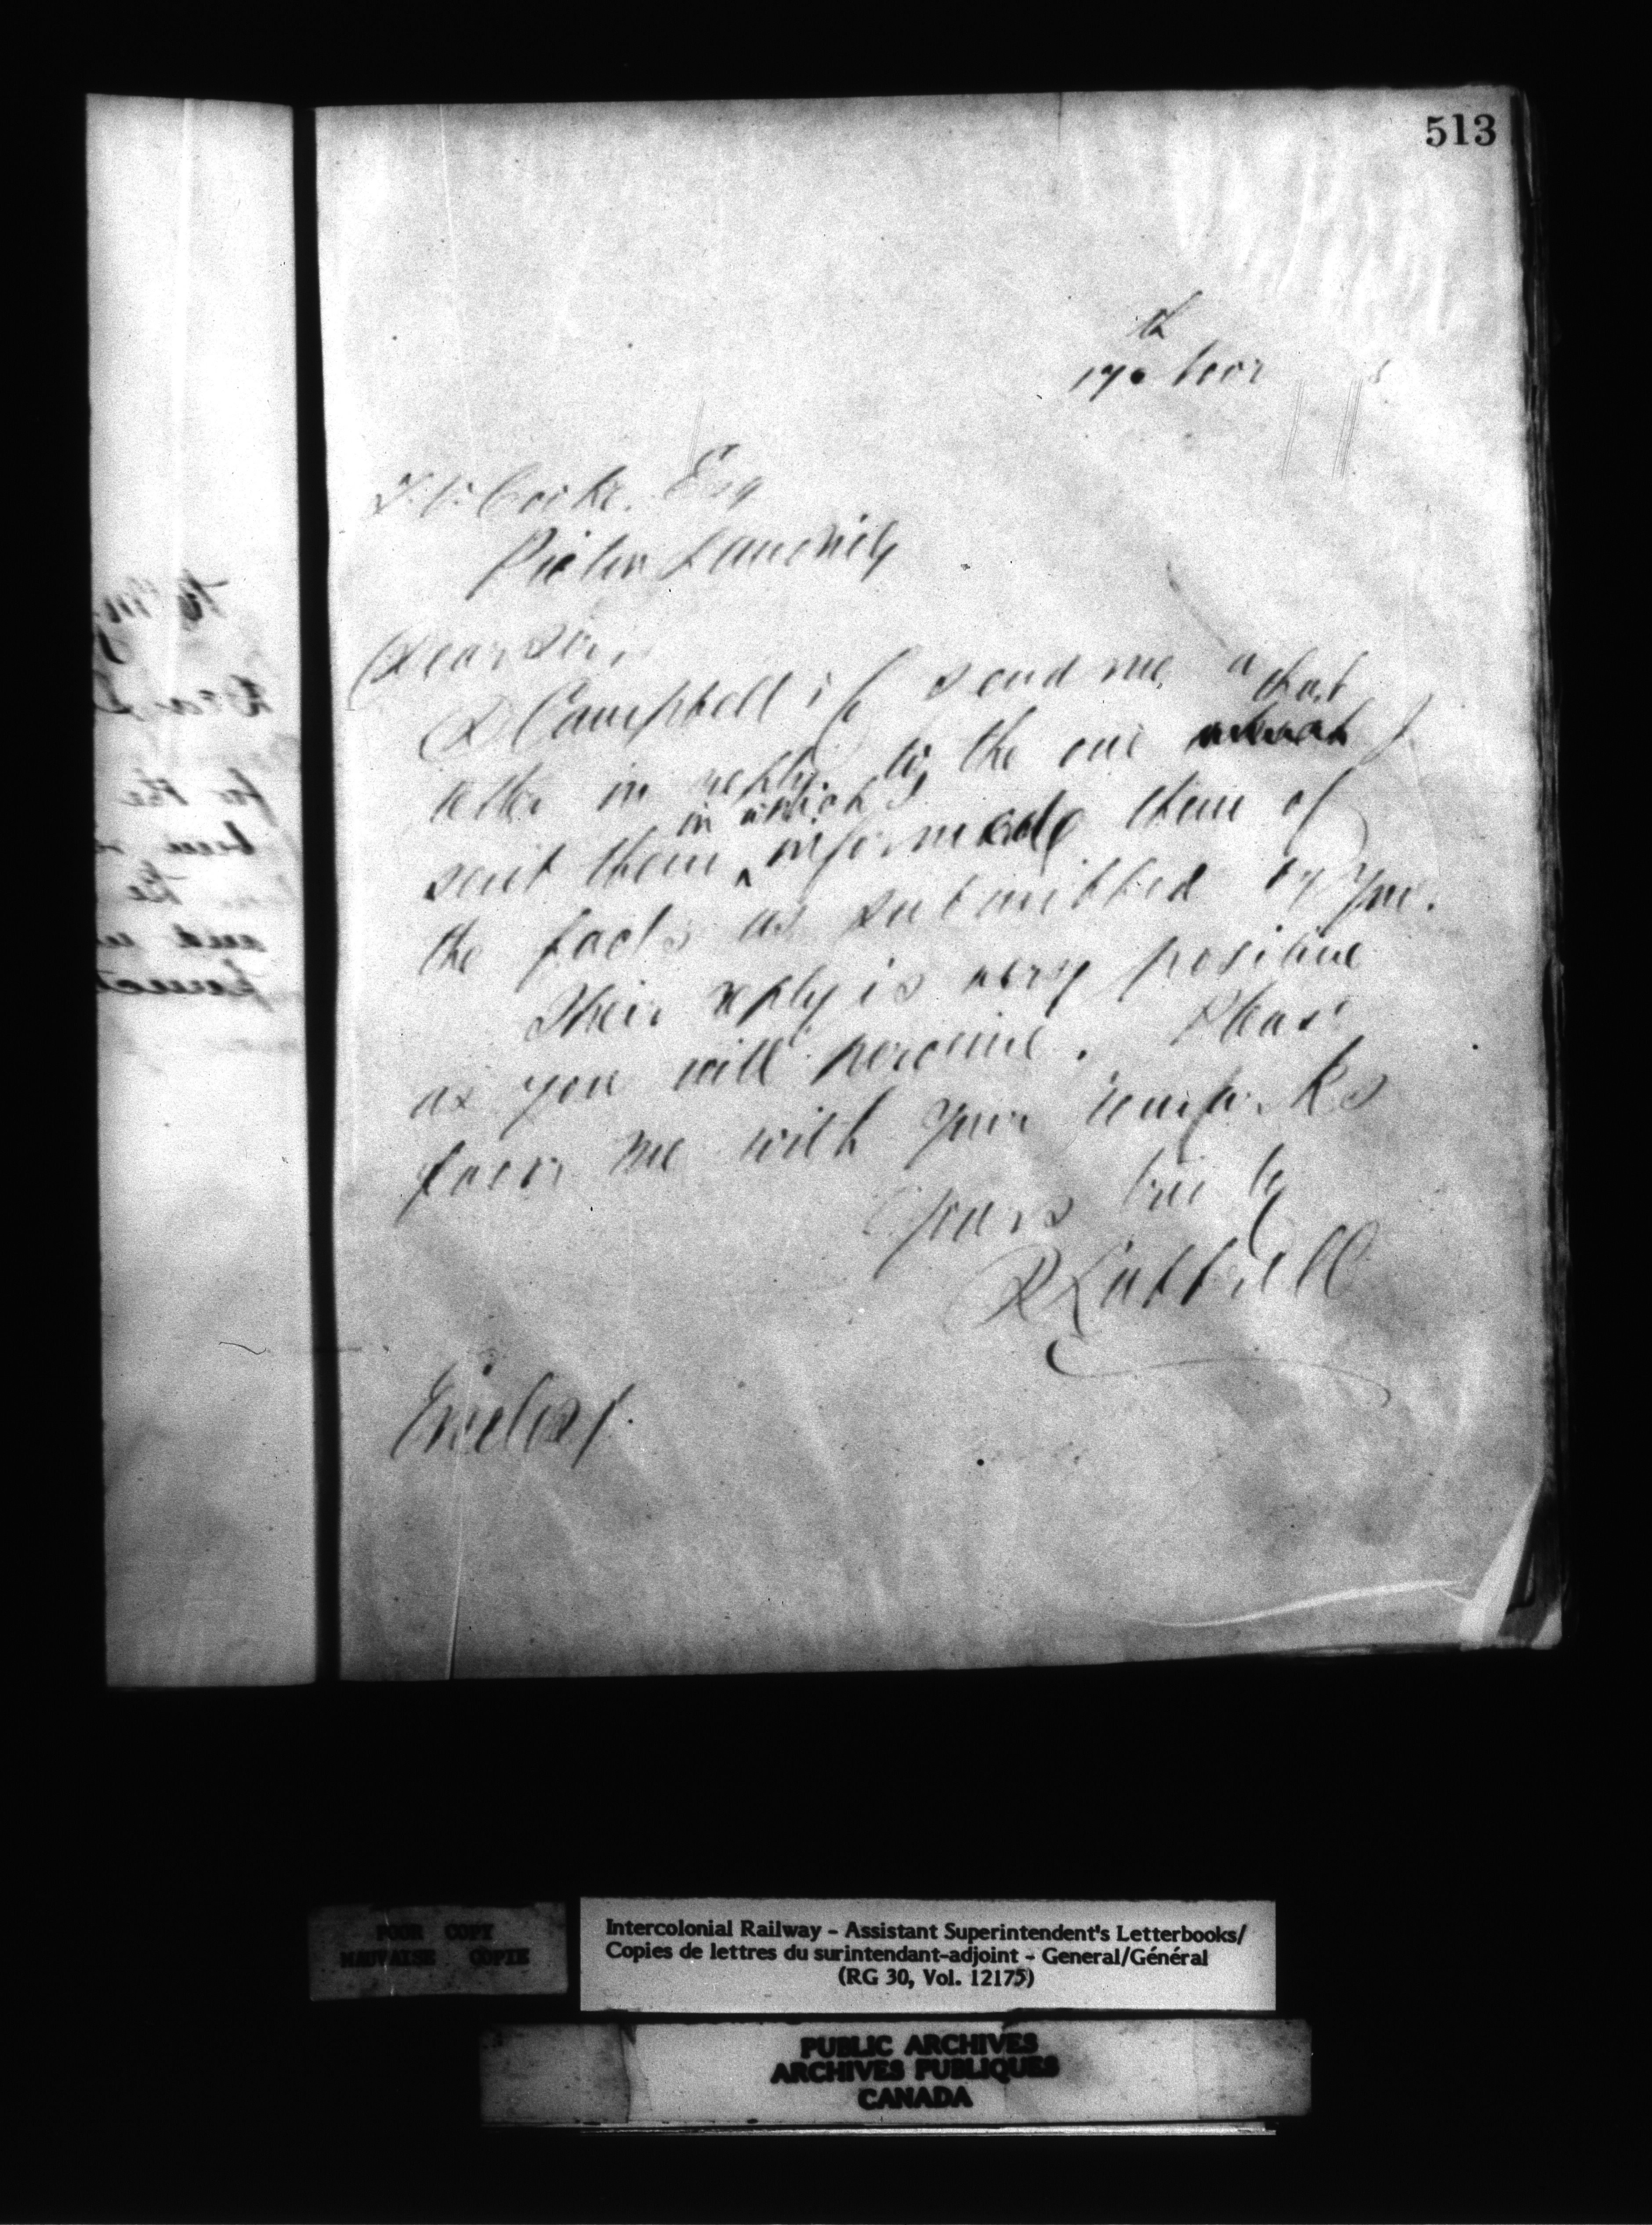 513
17th Novr
Cooke. Esq
Pictou Landing
Dear Sir,
D Campbell & Co send me a
letter in reply to the one that I
sent them in which I informed them of
the facts as submitted by you.
Their reply is very positive
as you will perceive. Please
favor me with your remarks
Yours truly
R Luttrell
Enclos/.
POOR COPY
MAUVAISE COPIE
Intercolonial Railway - Assistant Superintendent's Letterbooks/
Copies de lettres du surintendant-adjoint - General/Général
(RG 30, Vol. 12175)
PUBLIC ARCHIVES
ARCHIVES PUBLIQUES
CANADA